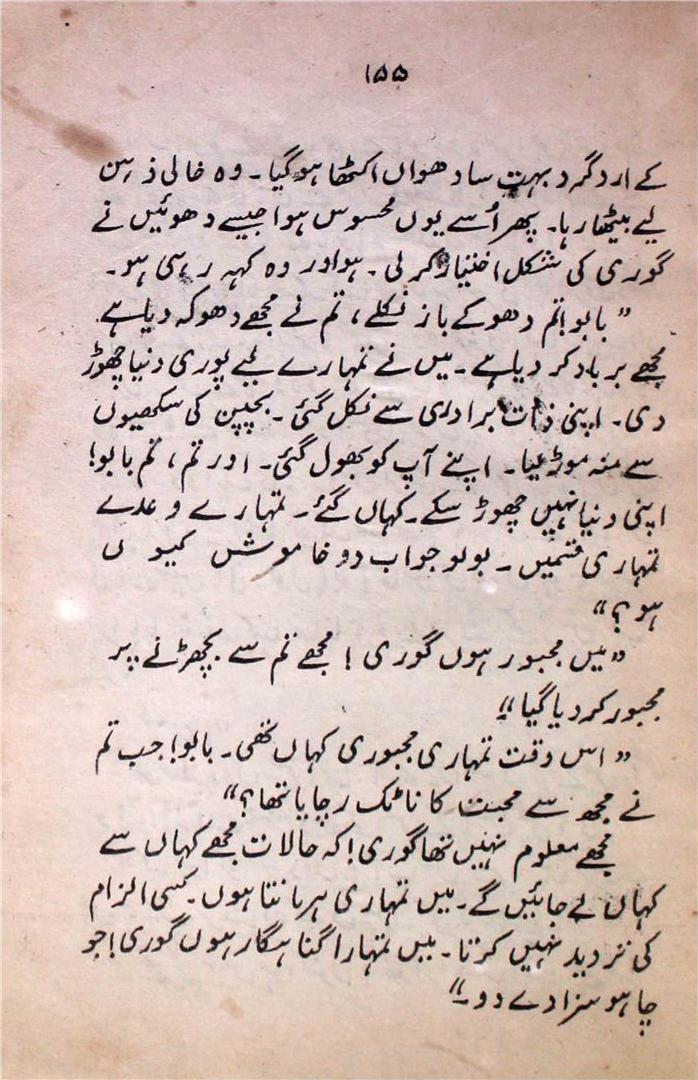 ۱۵۵
کے ارد گرد بہت سا دھواں اکٹھا ہو گیا۔ وہ خالی ذہن
لیے بیٹھا رہا۔ پھر اُسے یوں محسوس ہوا جیسے دھوئیں نے
گوری کی شکل اختیار کر لی۔ ہو اور وہ کہہ رہی ہو۔
”بابو! تم دھوکے باز نکلے، تم نے مجھے دھوکہ دیا ہے
مجھے برباد کر دیا ہے۔ میں نے تمہارے لیے پوری دنیا چھوڑ
دی۔ اپنی ذات برادری سے نکل گئی۔ بچپن کی سکھیوں
سے منہ موڑ لیا۔ اپنے آپ کو بھول گئی۔ اور تم، تم بابو!
اپنی دنیا نہیں چھوڑ سکے۔ کہاں گئے۔ تمہارے وعدے
تمہاری قسمیں۔ بولو جواب دو خاموش کیوں
ہو؟“
”میں مجبور ہوں گوری! مجھے تم سے بچھڑنے پر
مجبور کر دیا گیا“
”اس وقت تمہاری مجبوری کہاں تھی۔ بابو! جب تم
نے مجھ سے محبت کا ناٹک رچایا تھا؟“
مجھے معلوم نہیں تھا گوری! کہ حالات مجھے کہاں سے
کہاں لے جائیں گے۔ میں تمہاری ہر مانتا ہوں۔ کسی الزام
کی تردید نہیں کرتا۔ میں تمہارا گناہگار ہوں گوری! جو
چاہو سزا دے دو۔“